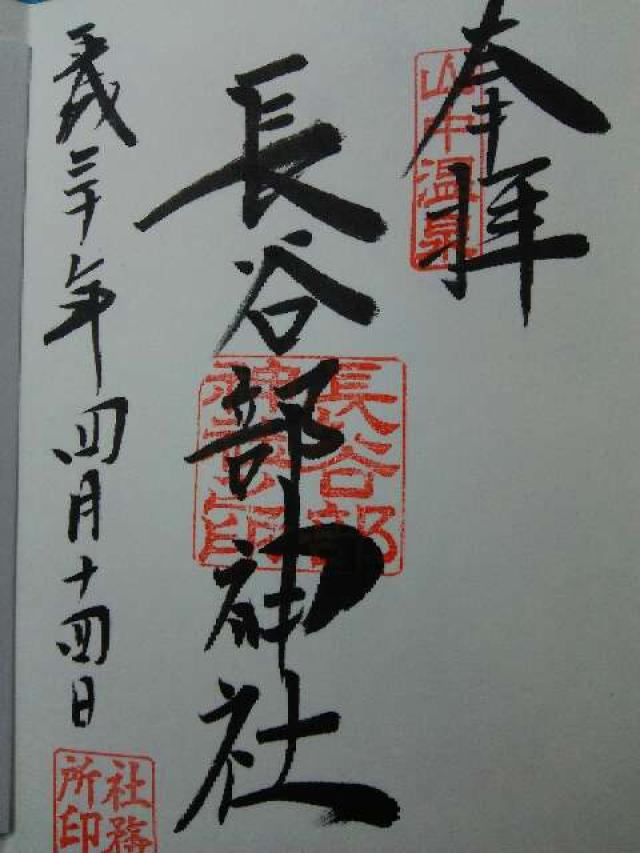 奉拝
山中温泉
長谷部神社
長谷部
神社之印
平成三十年四月十四日
社務
所印